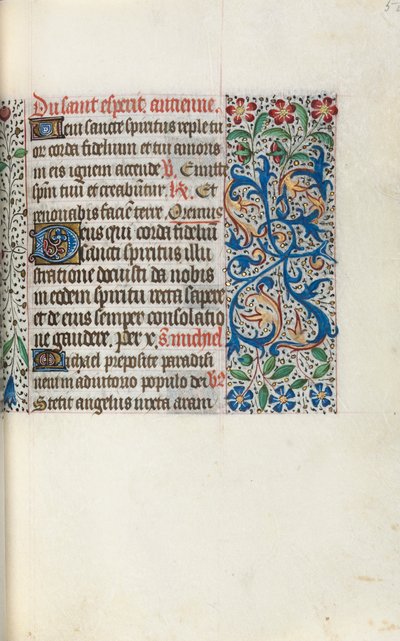 Du saint esperit. antienne.
Veni sancte spiritus reple tu
or corda fidelium et tui amoris
in eis ignem accende V. Emitte
spm tuū et creabūtur. R. Et
renouabis faciē terre. Oremus
Deus qui corda fideliū
sancti spiritus illu
stratione docuisti da nobis
in eodem spiritu recta sapere
et de eius semper consolatio
ne gaudere. Per x. S. michiel
Michael preposite paradisi
veni in adiutorio populo dei V.
Stetit angelus iuxta aram